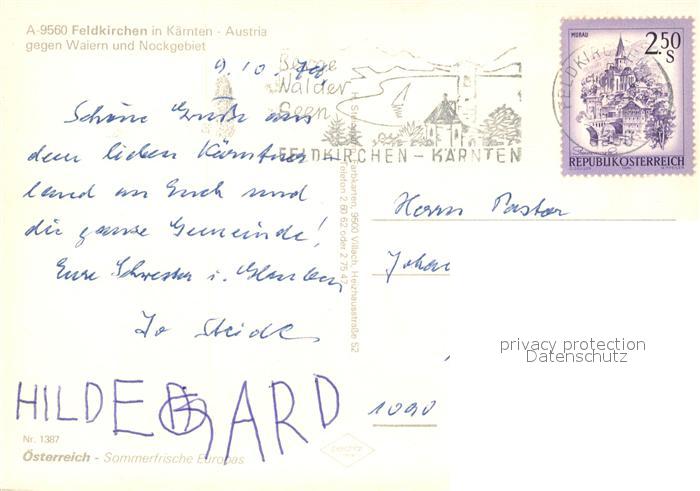 A-9560 Feldkirchen in Kärnten - Austria
gegen Waiern und Nockgebiet
9. 10. 79
Berge
Wälder
Seen
FELDKIRCHEN - KÄRNTEN
MURAU
2.50
S
REPUBLIK ÖSTERREICH
FELDKIRCHEN
Schöne Grüße aus
dem lieben Kärntner
land an Euch und
die ganze Gemeinde!
Eure Schwester i. Glauben
HILDEGARD
Farbkarten, 9500 Villach, Heizhausstraße 52
Telefon 2 60 62 oder 2 75 47
Herrn Pastor
Johan
1090
privacy protection
Datenschutz
Nr. 1387
Österreich - Sommerfrische Europas